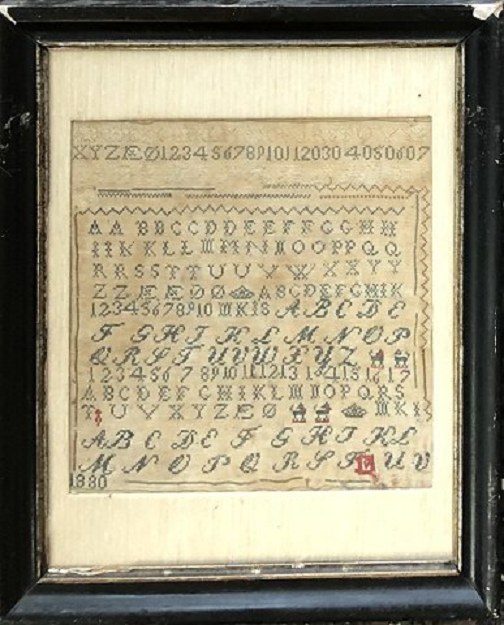 XYZÆØ123456789101120304050607
AABBCCDDEEFFGGHH
IIKKLLMMNNOOPPQQ
RRSSTTUUVVXXYY
ZZÆÆØØABCDEFGHIK
12345678910MKISABCDE
FGHIKLMNOP
QRSTUVWXYZ
1234567891011121314151617
ABCDEFGHIKLMNOPQRS
TUVXYZÆØMKI
ABCDEFGHIKL
MNOPQRSTLUV
1880